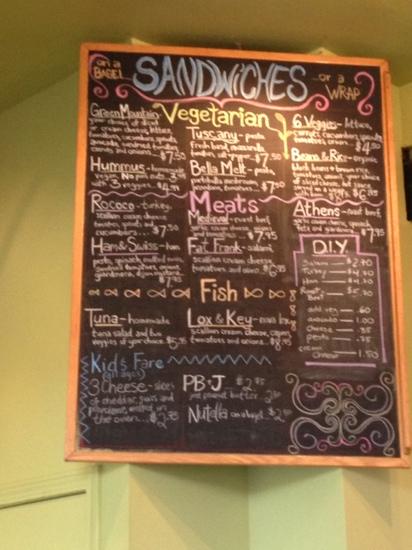 on a
BAGEL
SANDWiCHES
...or a
WRAP
Vegetarian
Green Mountain-
your choice of sliced
or cream cheese, lettuce,
tomatoes, cucumbers, sprouts,
avocado, sundried tomatoes,
carrots and onions... $7.50
Tuscany - pesto,
fresh basil, mozzarella
tomatoes, $7.50
6 Veggies - lettuce,
carrots, cucumbers, sprouts,
tomatoes, onions $4.50
Hummus - homemade
vegan. No pun 3.95
with 3 veggies. $4.99
Bella Melt - pesto,
portobella mushroom,
tomatoes... $7.50
Beans & Rice - organic
black beans + brown rice,
your choice
of sliced cheese, hot sauce
$6.95
Meats
Rococo - turkey,
scallion cream cheese
tomatoes, sprouts and
cucumbers... $7.50
Medieval - roast beef,
garlic cream cheese, onions
and tomatoes $7.95
Athens - roast beef,
garlic cream cheese, sprouts,
feta and
$7.95
Ham & Swiss - ham
pesto, spinach, melted swiss,
tomatoes, onions,
$7.95
Fat Frank - salami,
scallion cream cheese,
tomatoes and onions $6.95
D.I.Y
Salami $2.70
Turkey $4.30
Ham $4.30
Roast Beef $5.30
add veg .60
avocado 1.00
cheese .95
pesto .75
cream cheese 1.50
Fish
Tuna - homemade
tuna salad and two
veggies of your choice. $5.95
Lox & Key - nova lox,
scallion cream cheese, capers,
tomatoes and onions. $8.95
Kid's Fare
(all ages)
3 Cheese - slices
of cheddar, swiss and
provolone, melted in
the oven... $2.75
PB+J $2.95
just peanut butter 2.50
Nutella on a bagel $2.50